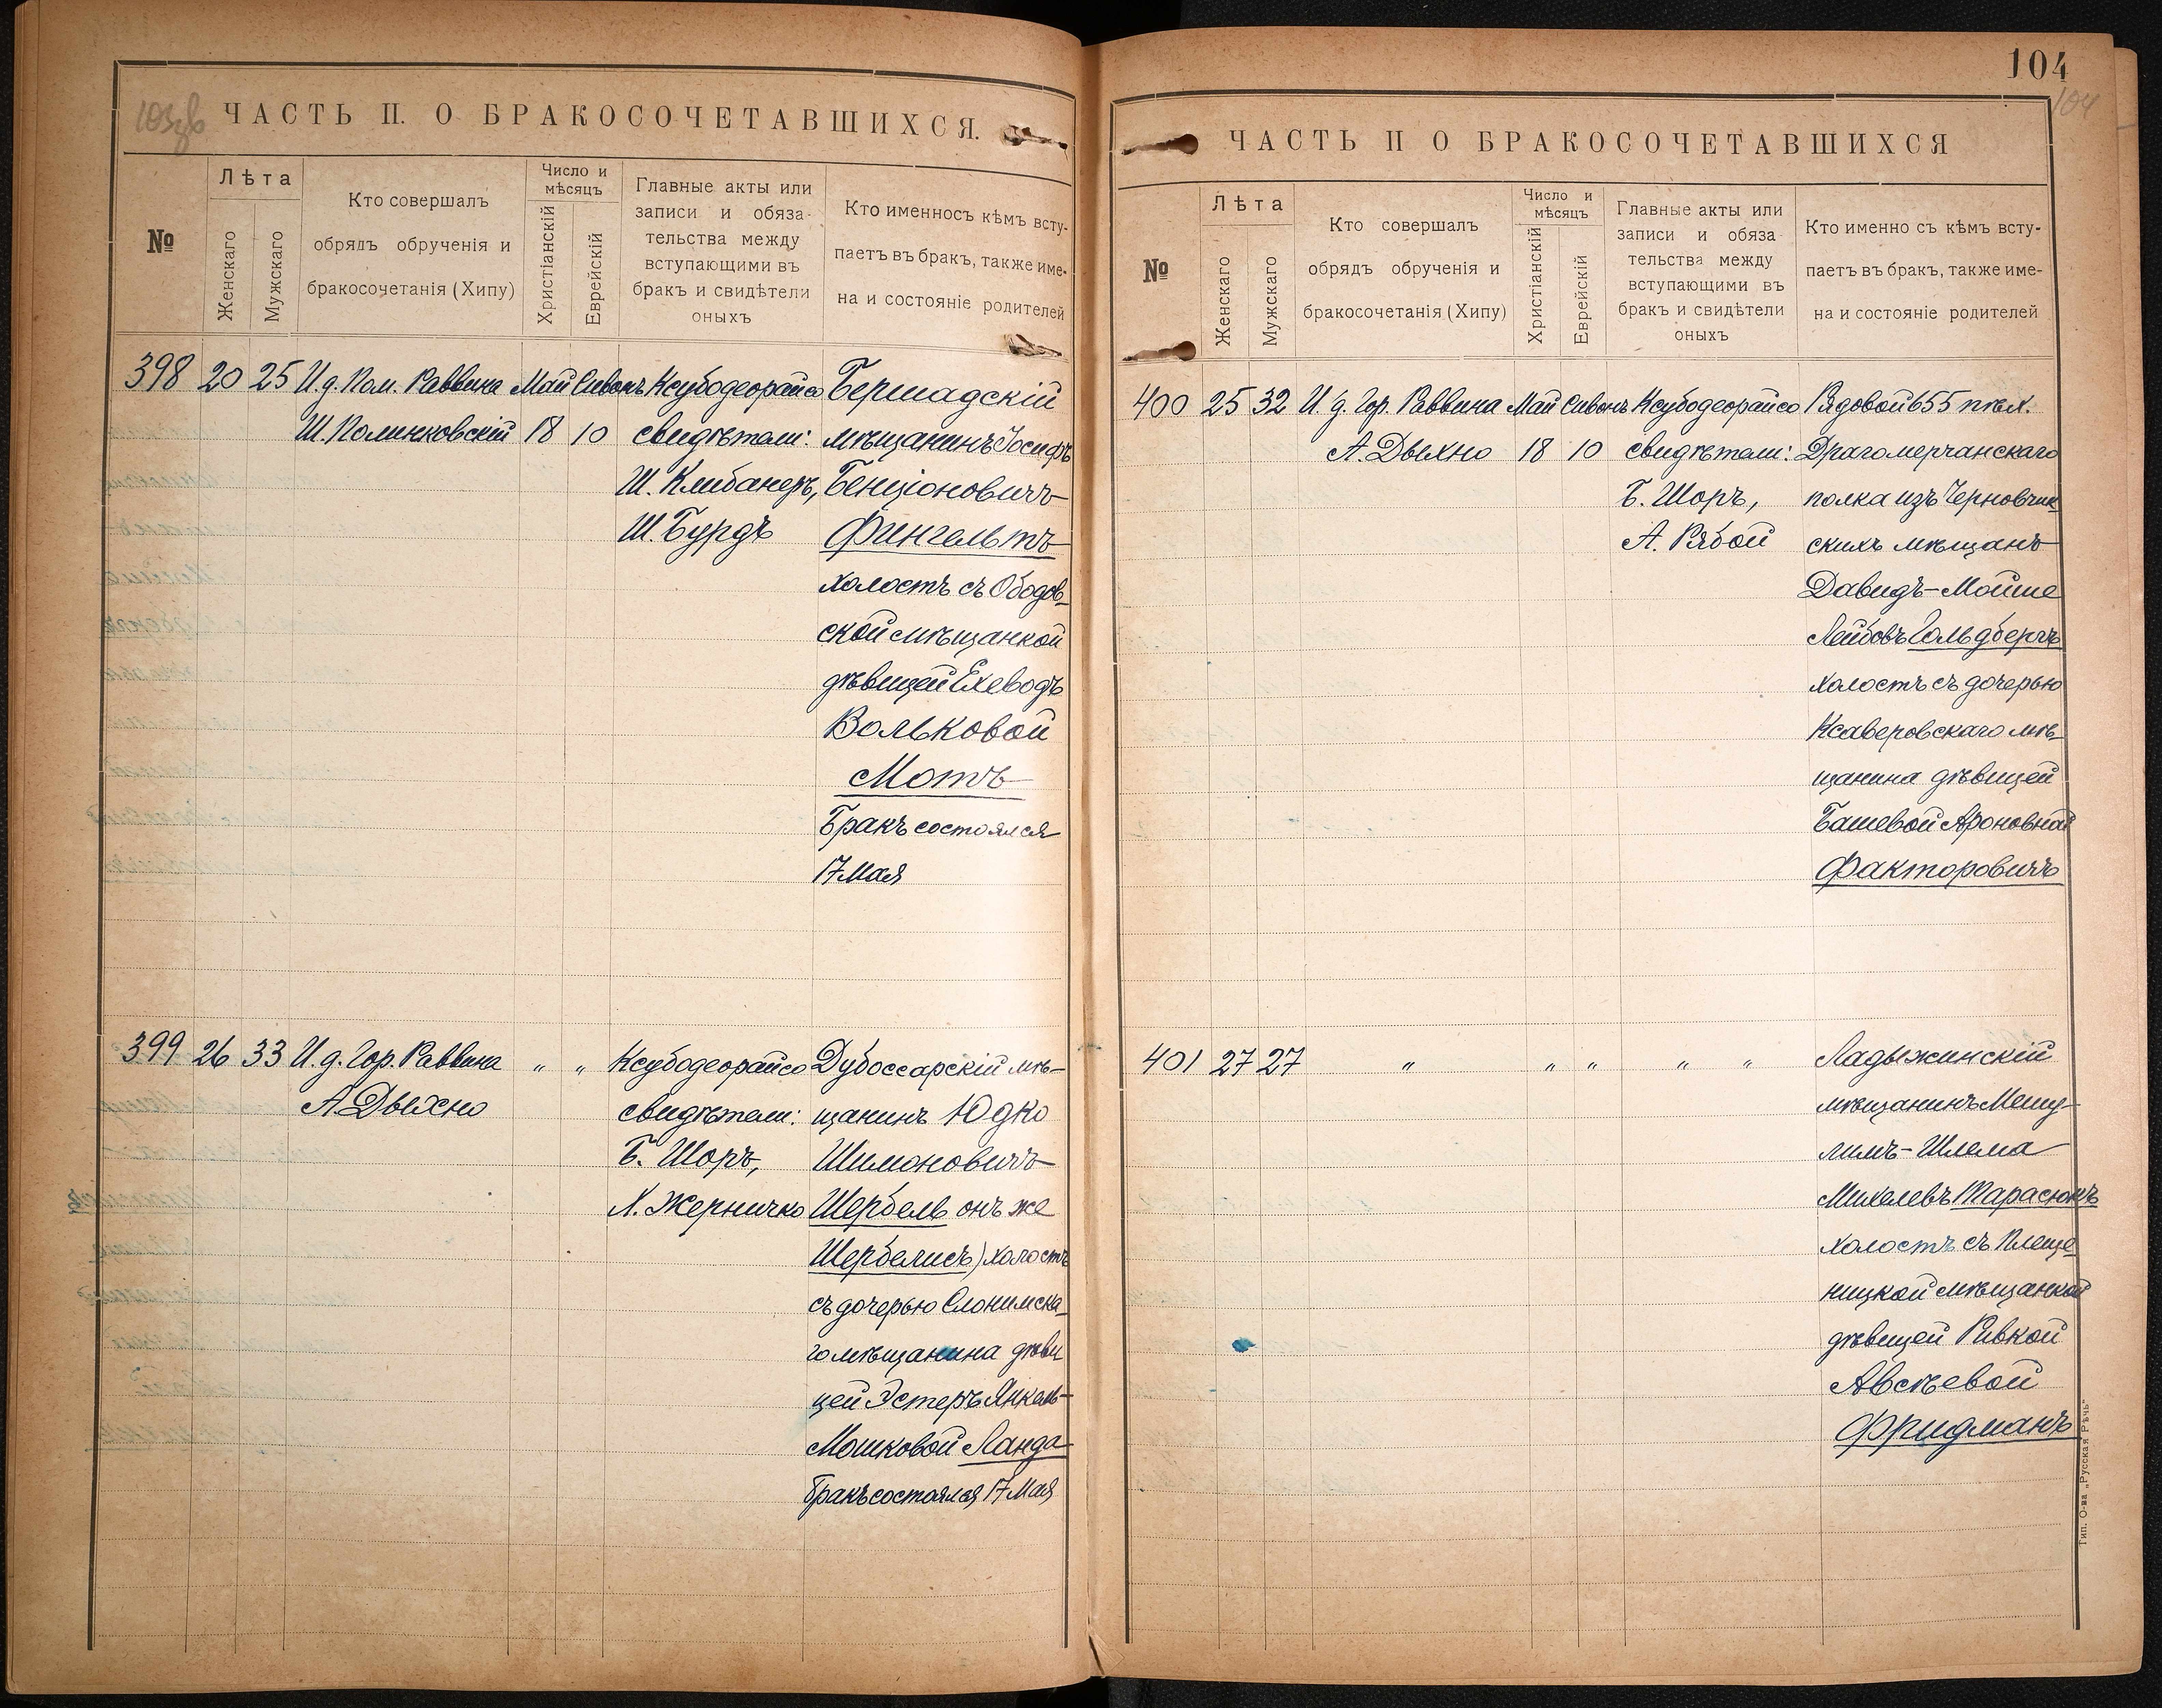 103зв
ЧАСТЬ II. О БРАКОСОЧЕТАВШИХСЯ.
№
Лѣта
Женскаго
Мужскаго
Кто совершалъ
обрядъ обрученія и
бракосочетанія (Хипу)
Число и
мѣсяцъ
Христіанскій
Еврейскій
Главные акты или
записи и обяза-
тельства между
вступающими въ
бракъ и свидѣтели
оныхъ
Кто именносъ кѣмъ всту-
паетъ въ бракъ, также име-
на и состояніе родителей
398 20 25 И.д. Пом. Раввина Май Сивонъ Ксубодеорайсо Бершадскій
Ш. Полинковскій 18 10 свидѣтели: мѣщанинъ Іосифъ
Ш. Клибанеръ, Бенціоновичъ
Ш. Бурдъ Фингельтъ
холостъ съ Ободов-
ской мѣщанкой
дѣвицей Ехеводъ
Вольковой
Мотъ
Бракъ состоялся
17 Мая
399 26 33 И.д. Гор. Раввина " " Ксубодеорайсо Дубоссарскій мѣ-
А Дыхно свидѣтели: щанинъ Юдко
Б. Шоръ, Шимоновичъ
Л. Жерничко Щербель онъ же
Щербелисъ) холостъ
съ дочерью Слонимска-
го мѣщанина дѣви
цей Эстеръ Янкель-
Мошковой Ланда
бракъ состоялся 17 Мая
104
104
ЧАСТЬ II О БРАКОСОЧЕТАВШИХСЯ
№
Лѣта
Женскаго
Мужскаго
Кто совершалъ
обрядъ обрученія и
бракосочетанія (Хипу)
Число и
мѣсяцъ
Христіанскій
Еврейскій
Главные акты или
записи и обяза
тельства между
вступающими въ
бракъ и свидѣтели
оныхъ
Кто именно съ кѣмъ всту-
паетъ въ бракъ, также име-
на и состояніе родителей
400 25 32 И. д. Гор. Раввина Май Сивонъ Ксубодеорайсо Рядовой 655 пѣх.
А. Дыхно 18 10 свидѣтели: Драгомерчанскаго
Б. Шоръ, полка изъ Черновчик-
А. Рябой скихъ мѣщанъ
Давидъ-Мойше
Лейбовъ Гольдбергъ
холостъ съ дочерью
Ксаверовскаго мѣ-
щанина дѣвицей
Башевой Ароновной
Факторовичъ
401 27 27 " " " " " Ладыжинскій
мѣщанинъ Мешу-
лимъ-Шлема
Михелевъ Тарасюкъ
холостъ съ Плеще-
ницкой мѣщанкой
дѣвицей Ривкой
Авсѣевой
Фридманъ
Тип. О-ва „Русская Рѣчь"